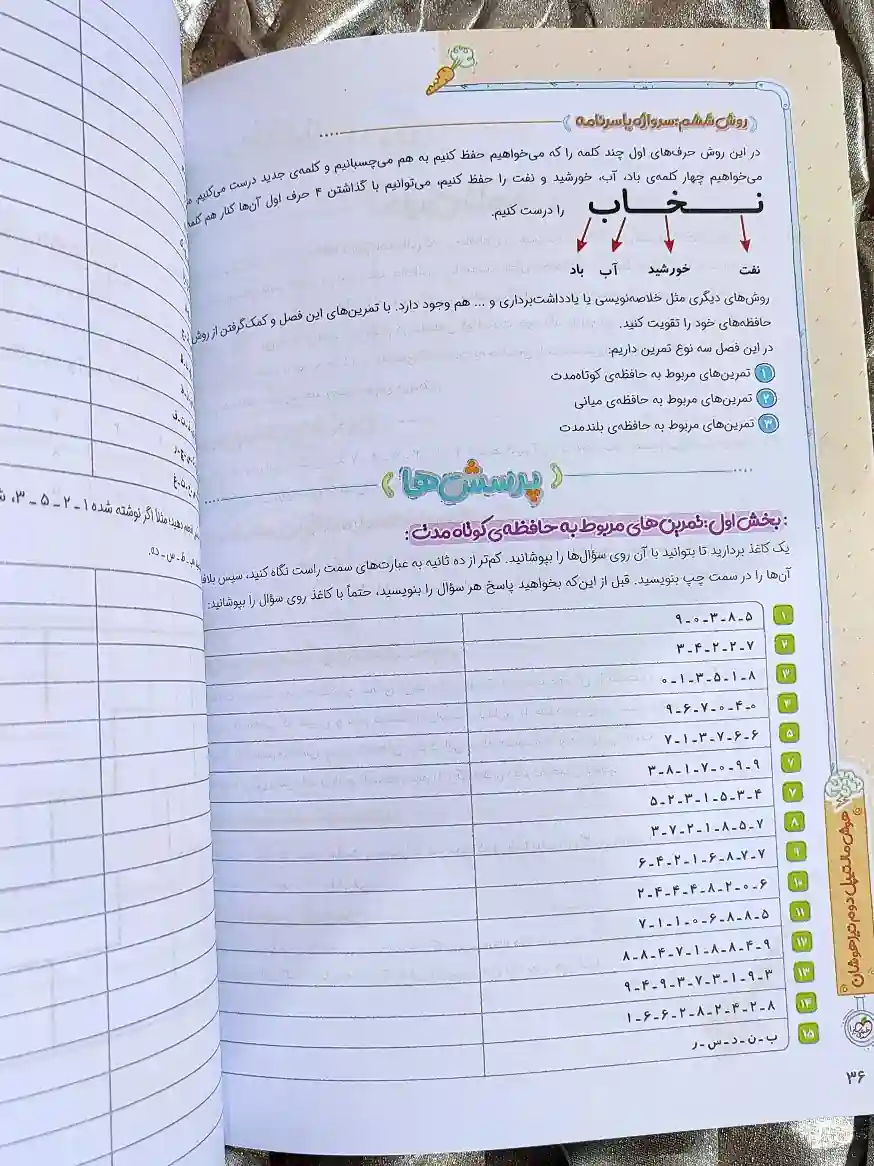 روش ششم: سرواژه یا سرنامه
در این روش حرف‌های اول چند کلمه را که می‌خواهیم حفظ کنیم به هم می‌چسبانیم و کلمه‌ی جدید درست می‌کنیم.
می‌خواهیم چهار کلمه‌ی باد، آب، خورشید و نفت را حفظ کنیم، می‌توانیم با گذاشتن ۴ حرف اول آن‌ها کنار هم کلمه
نـخـاب را درست کنیم.
نفت خورشید آب باد
روش‌های دیگری مثل خلاصه‌نویسی یا یادداشت‌برداری و ... هم وجود دارد. با تمرین‌های این فصل و کمک‌گرفتن از روش
حافظه‌های خود را تقویت کنید.
در این فصل سه نوع تمرین داریم:
۱ تمرین‌های مربوط به حافظه‌ی کوتاه‌مدت
۲ تمرین‌های مربوط به حافظه‌ی میانی
۳ تمرین‌های مربوط به حافظه‌ی بلندمدت
پرسش‌ها
بخش اول: تمرین‌های مربوط به حافظه‌ی کوتاه مدت:
یک کاغذ بردارید تا بتوانید با آن روی سؤال‌ها را بپوشانید. کم‌تر از ده ثانیه به عبارت‌های سمت راست نگاه کنید، سپس
آن‌ها را در سمت چپ بنویسید. قبل از این‌که بخواهید پاسخ هر سؤال را بنویسید، حتماً با کاغذ روی سؤال را بپوشانید:
۱ ۹-۰-۳-۸-۵
۲ ۳-۴-۲-۲-۷
۳ ۰-۱-۳-۵-۱-۸
۴ ۹-۶-۷-۰-۴-۰
۵ ۷-۱-۳-۷-۶-۶
۷ ۳-۸-۱-۷-۰-۹-۹
۷ ۵-۲-۳-۱-۵-۳-۴
۸ ۳-۷-۲-۱-۸-۵-۷
۹ ۶-۴-۲-۱-۶-۸-۷-۷
۱۰ ۲-۴-۴-۴-۸-۲-۰-۶
۱۱ ۷-۱-۱-۰-۶-۸-۸-۵
۱۲ ۸-۸-۴-۷-۱-۸-۸-۴-۹
۱۳ ۹-۴-۹-۳-۷-۳-۱-۹-۳
۱۴ ۱-۶-۶-۲-۸-۲-۴-۲-۸
۱۵ ب-ن-د-س-ر
هوش مالتیپل دوم تیزهوشان
۳۶
انجام دهید؛ مثلاً اگر نوشته شده ۱-۲-۵-۳،